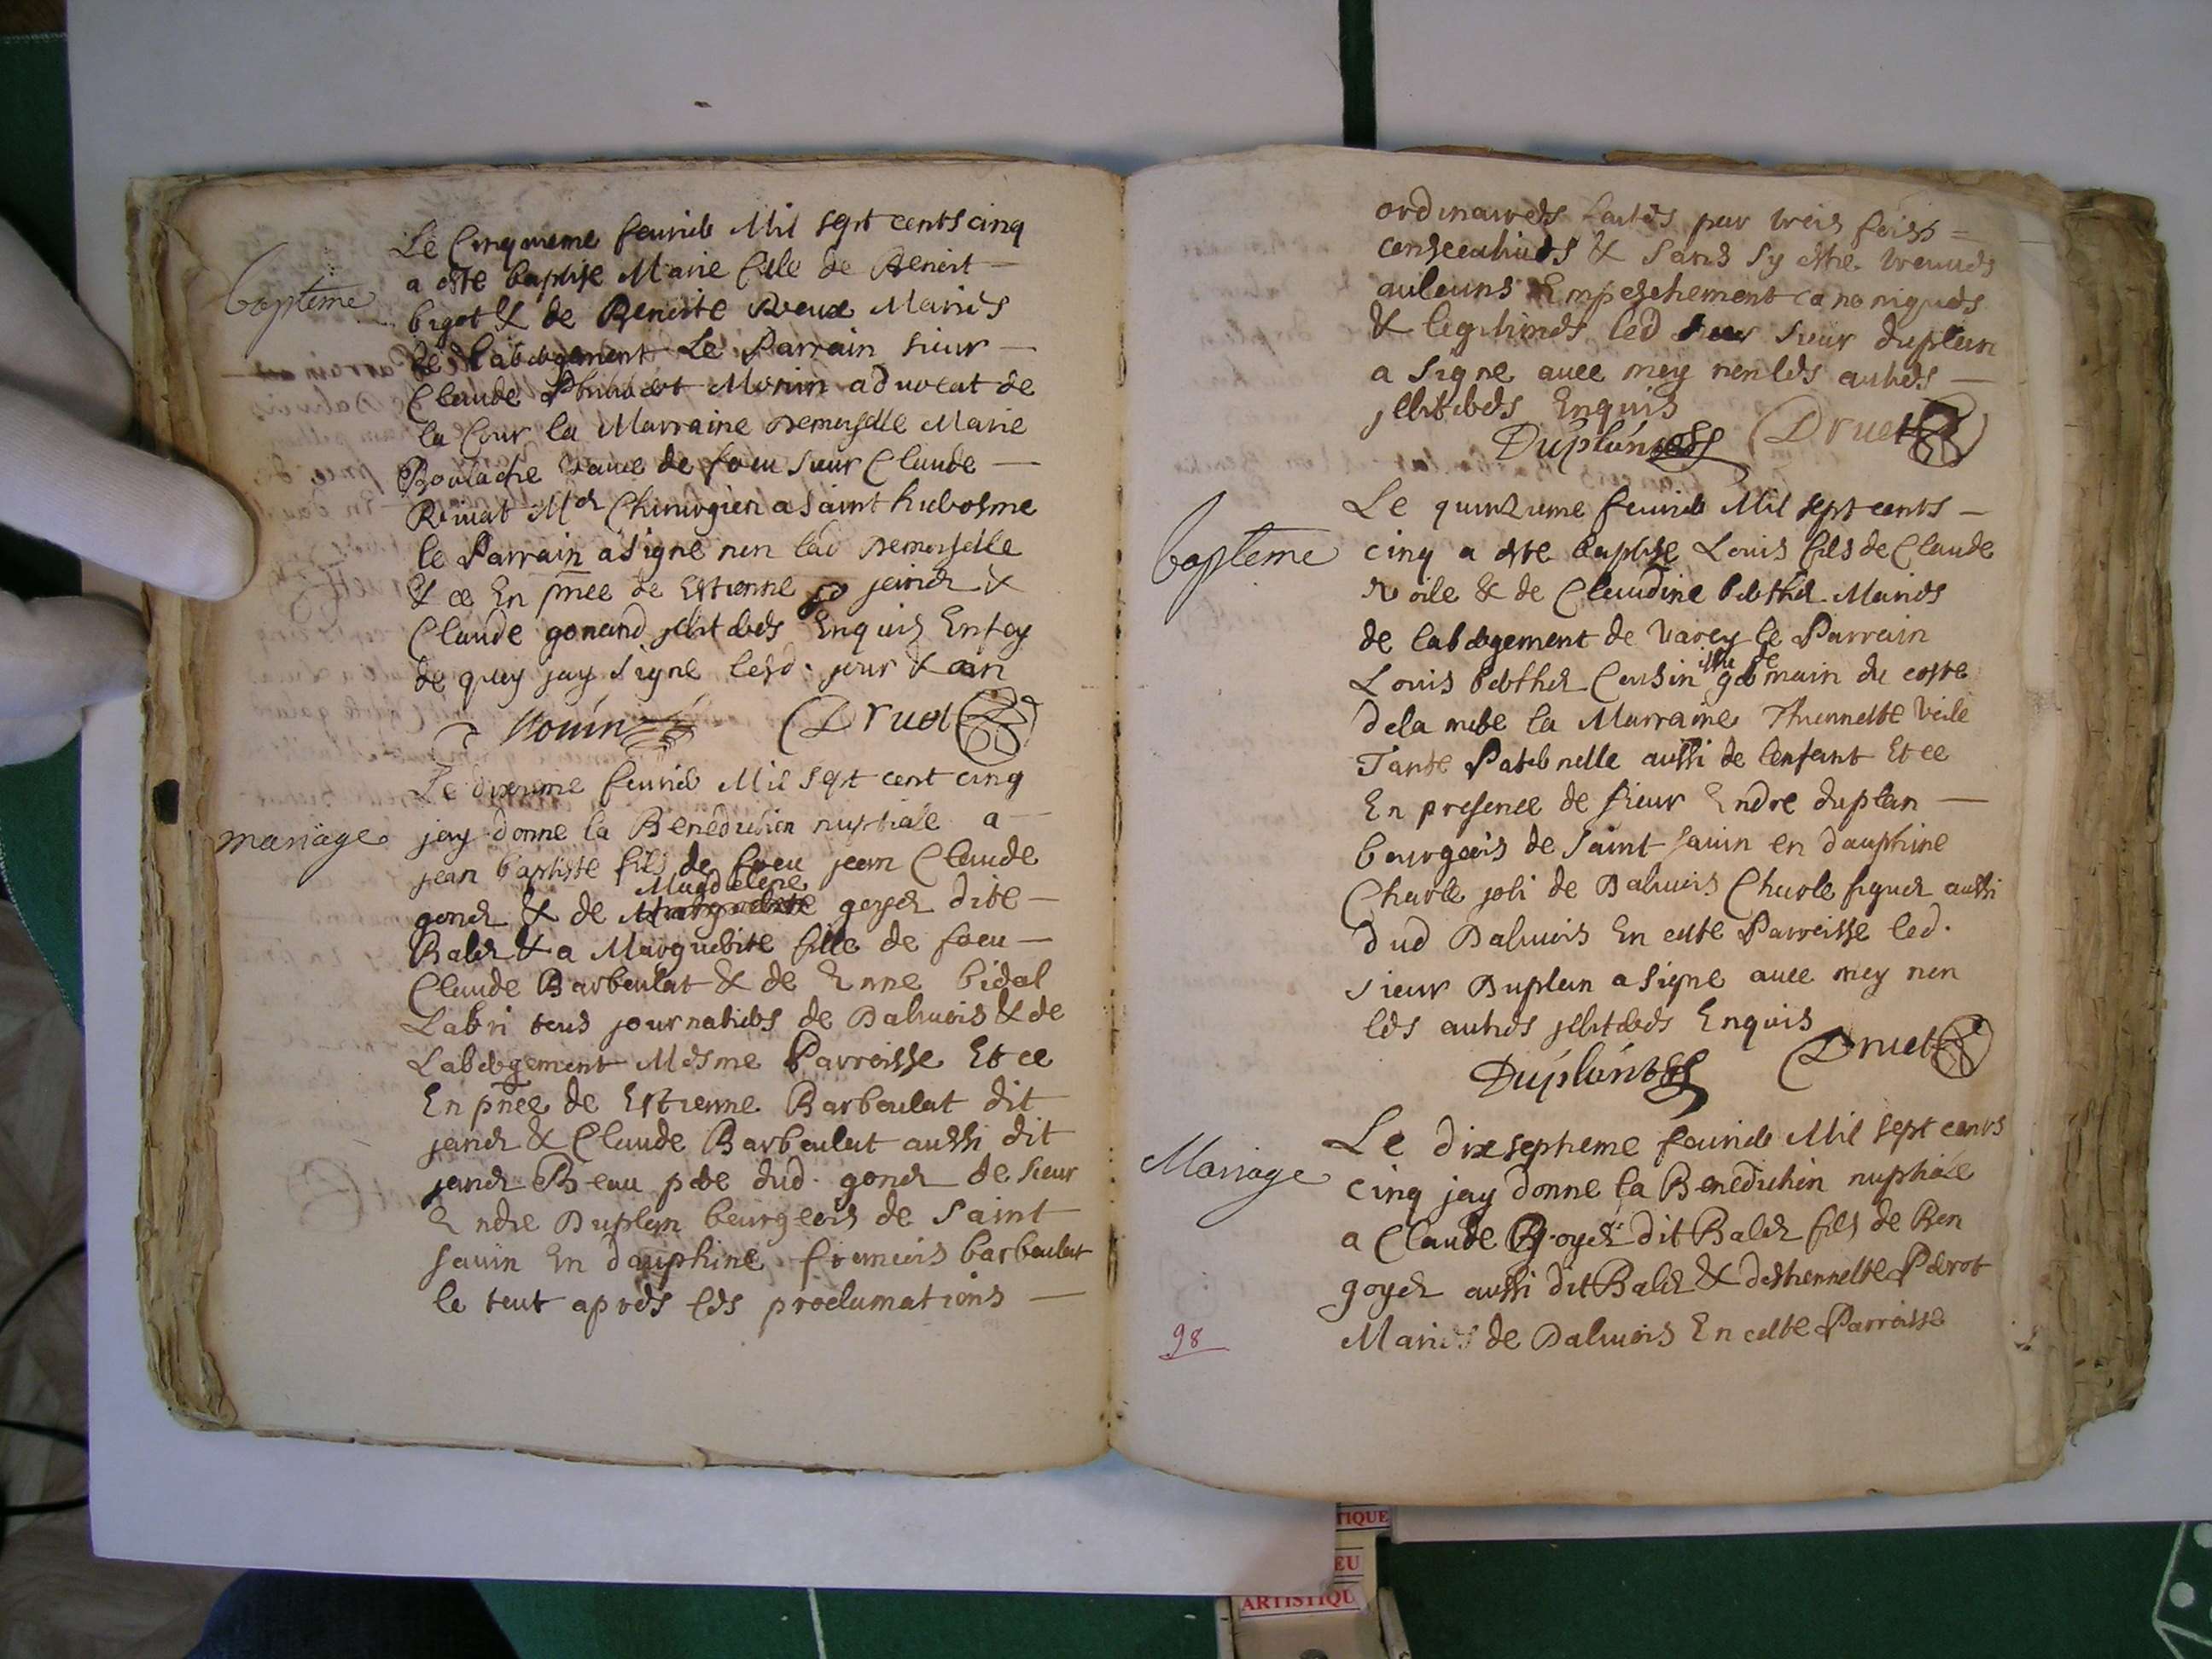 bapteme
Le Cinquieme feurier Mil sept cents cinq
a este baptise Marie fille de Benoit
bigot & de Benoite Roux Maries
de labergement Le Parrain sieur
Claude Philibert Morin aduocat de
la Cour la Marraine Demoyselle Marie
Boulache vaue de foeu sieur Claude
Rivat Md Chirurgien a saint hierosme
le Parrain a signe non lad Demoyselle
& ce En pnce de Estienne janier &
Claude gonand jllitteres Enquis En foy
de quoy jay signe lesd. jour & an
Morin Druet
mariage
Le dixieme feurier Mil sept cent cinq
jay donne la Benediction nuptiale a
jean baptiste fils de foeu jean Claude
Magdelene
goner & de Marguerite goyer dite
Baler & a Marguerite fille de foeu
Claude Barboulat & de Enne bidal
Labri tous journaliers de Dalivois & de
Labergement Mesme Parroisse Et ce
En pnce de Estienne Barboulat dit
janer & Claude Barboulat aussi dit
janer Beau pere dud. goner de sieur
Endre Duplan bourgeois de Saint
sauin En dauphine francois barboulat
le tout apres les proclamations
ordinaires faites par trois fois
consecutiues & sans sy estre trouues
auleuns Empeschement canoniques
& legitimes led sieur duplan
a signe auec moy non les autres
jllitteres Enquis
Duplantes Druet
bapteme
Le quinzieme feurier Mil sept cents
cinq a este baptise Louis fils de Claude
Voile & de Claudine berthier Maries
de labergement de varey le Parrain
issu de
Louis berthier Cousin germain du coste
dela mere la Marraine Thiennette Voile
Tante Paternelle aussi de lenfant Et ce
En presence de sieur Endre duplan
bourgeois de saint sauin en dauphine
Charle joli de Dalivois Charle figuer aussi
dud Dalivois En cette Parroisse led.
sieur Duplan a signe auec moy non
les autres jllitteres Enquis
Duplantes Druet
Mariage
Le dix septieme feurier Mil sept cents
cinq jay donne la Benediction nuptiale
a Claude Goyer dit Baler fils de Ben
goyer aussi dit Baler & desthiennette Perrot
Maries de Dalivois En cette Parroisse
98
TIQUE
EU
ARTISTIQU